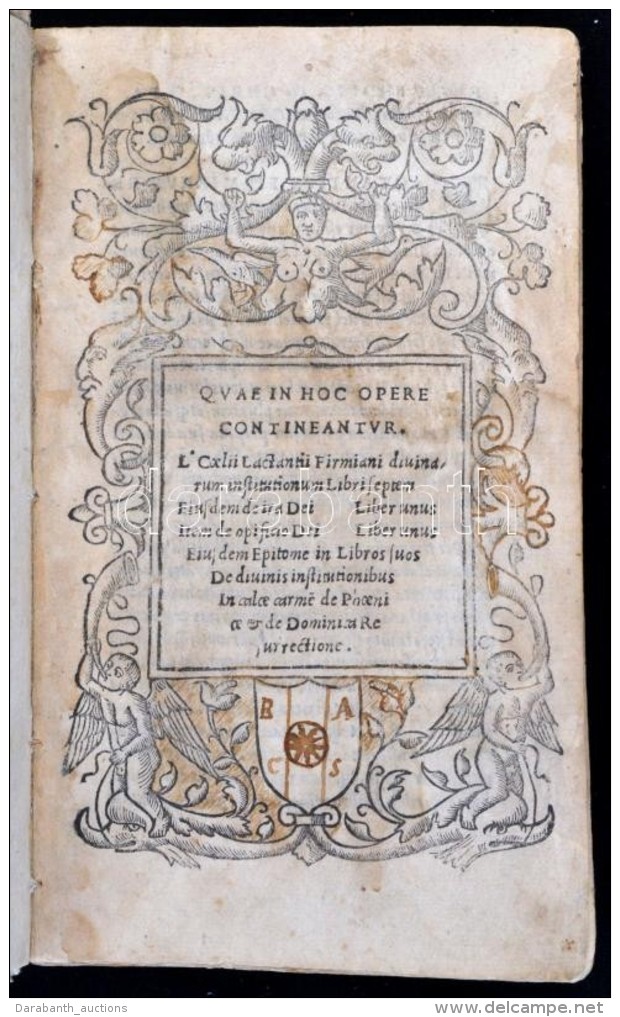 QVAE IN HOC OPERE
CONTINEANTVR.
L. Cælii Lactantii Firmiani diuina,
rum institutionum Libri septem
Eiusdem de ira Dei Liber unus
Item de opificio Dei Liber unus
Eiusdem Epitome in Libros suos
De diuinis institutionibus
In calce carmē de Phœni
ce & de Dominica Re
surrectione.
B A
C S
darabanth
Darabanth_auctions
www.delcampe.net